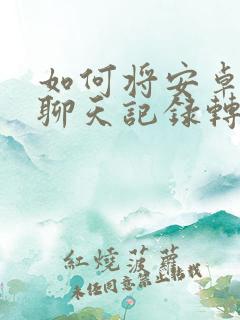 如何将安卓
聊天記錄轉
紅燒菠蘿
未经同意禁止转载